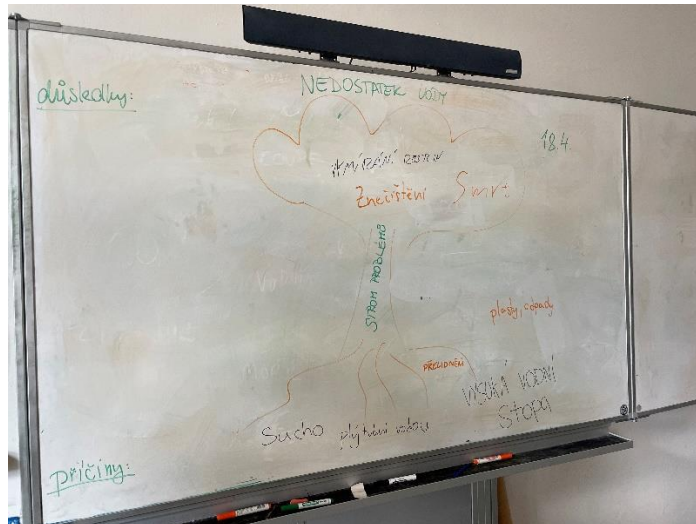 NEDOSTATEK VODY
důsledky:
18.4.
UMÍRÁNÍ ROSTLIN
Znečištění Smrt
STROM PROBLÉMŮ
plasty, odpady
PŘELIDNĚNÍ
VYSOKÁ VODNÍ
stopa
Sucho plýtvání vodou
příčiny: